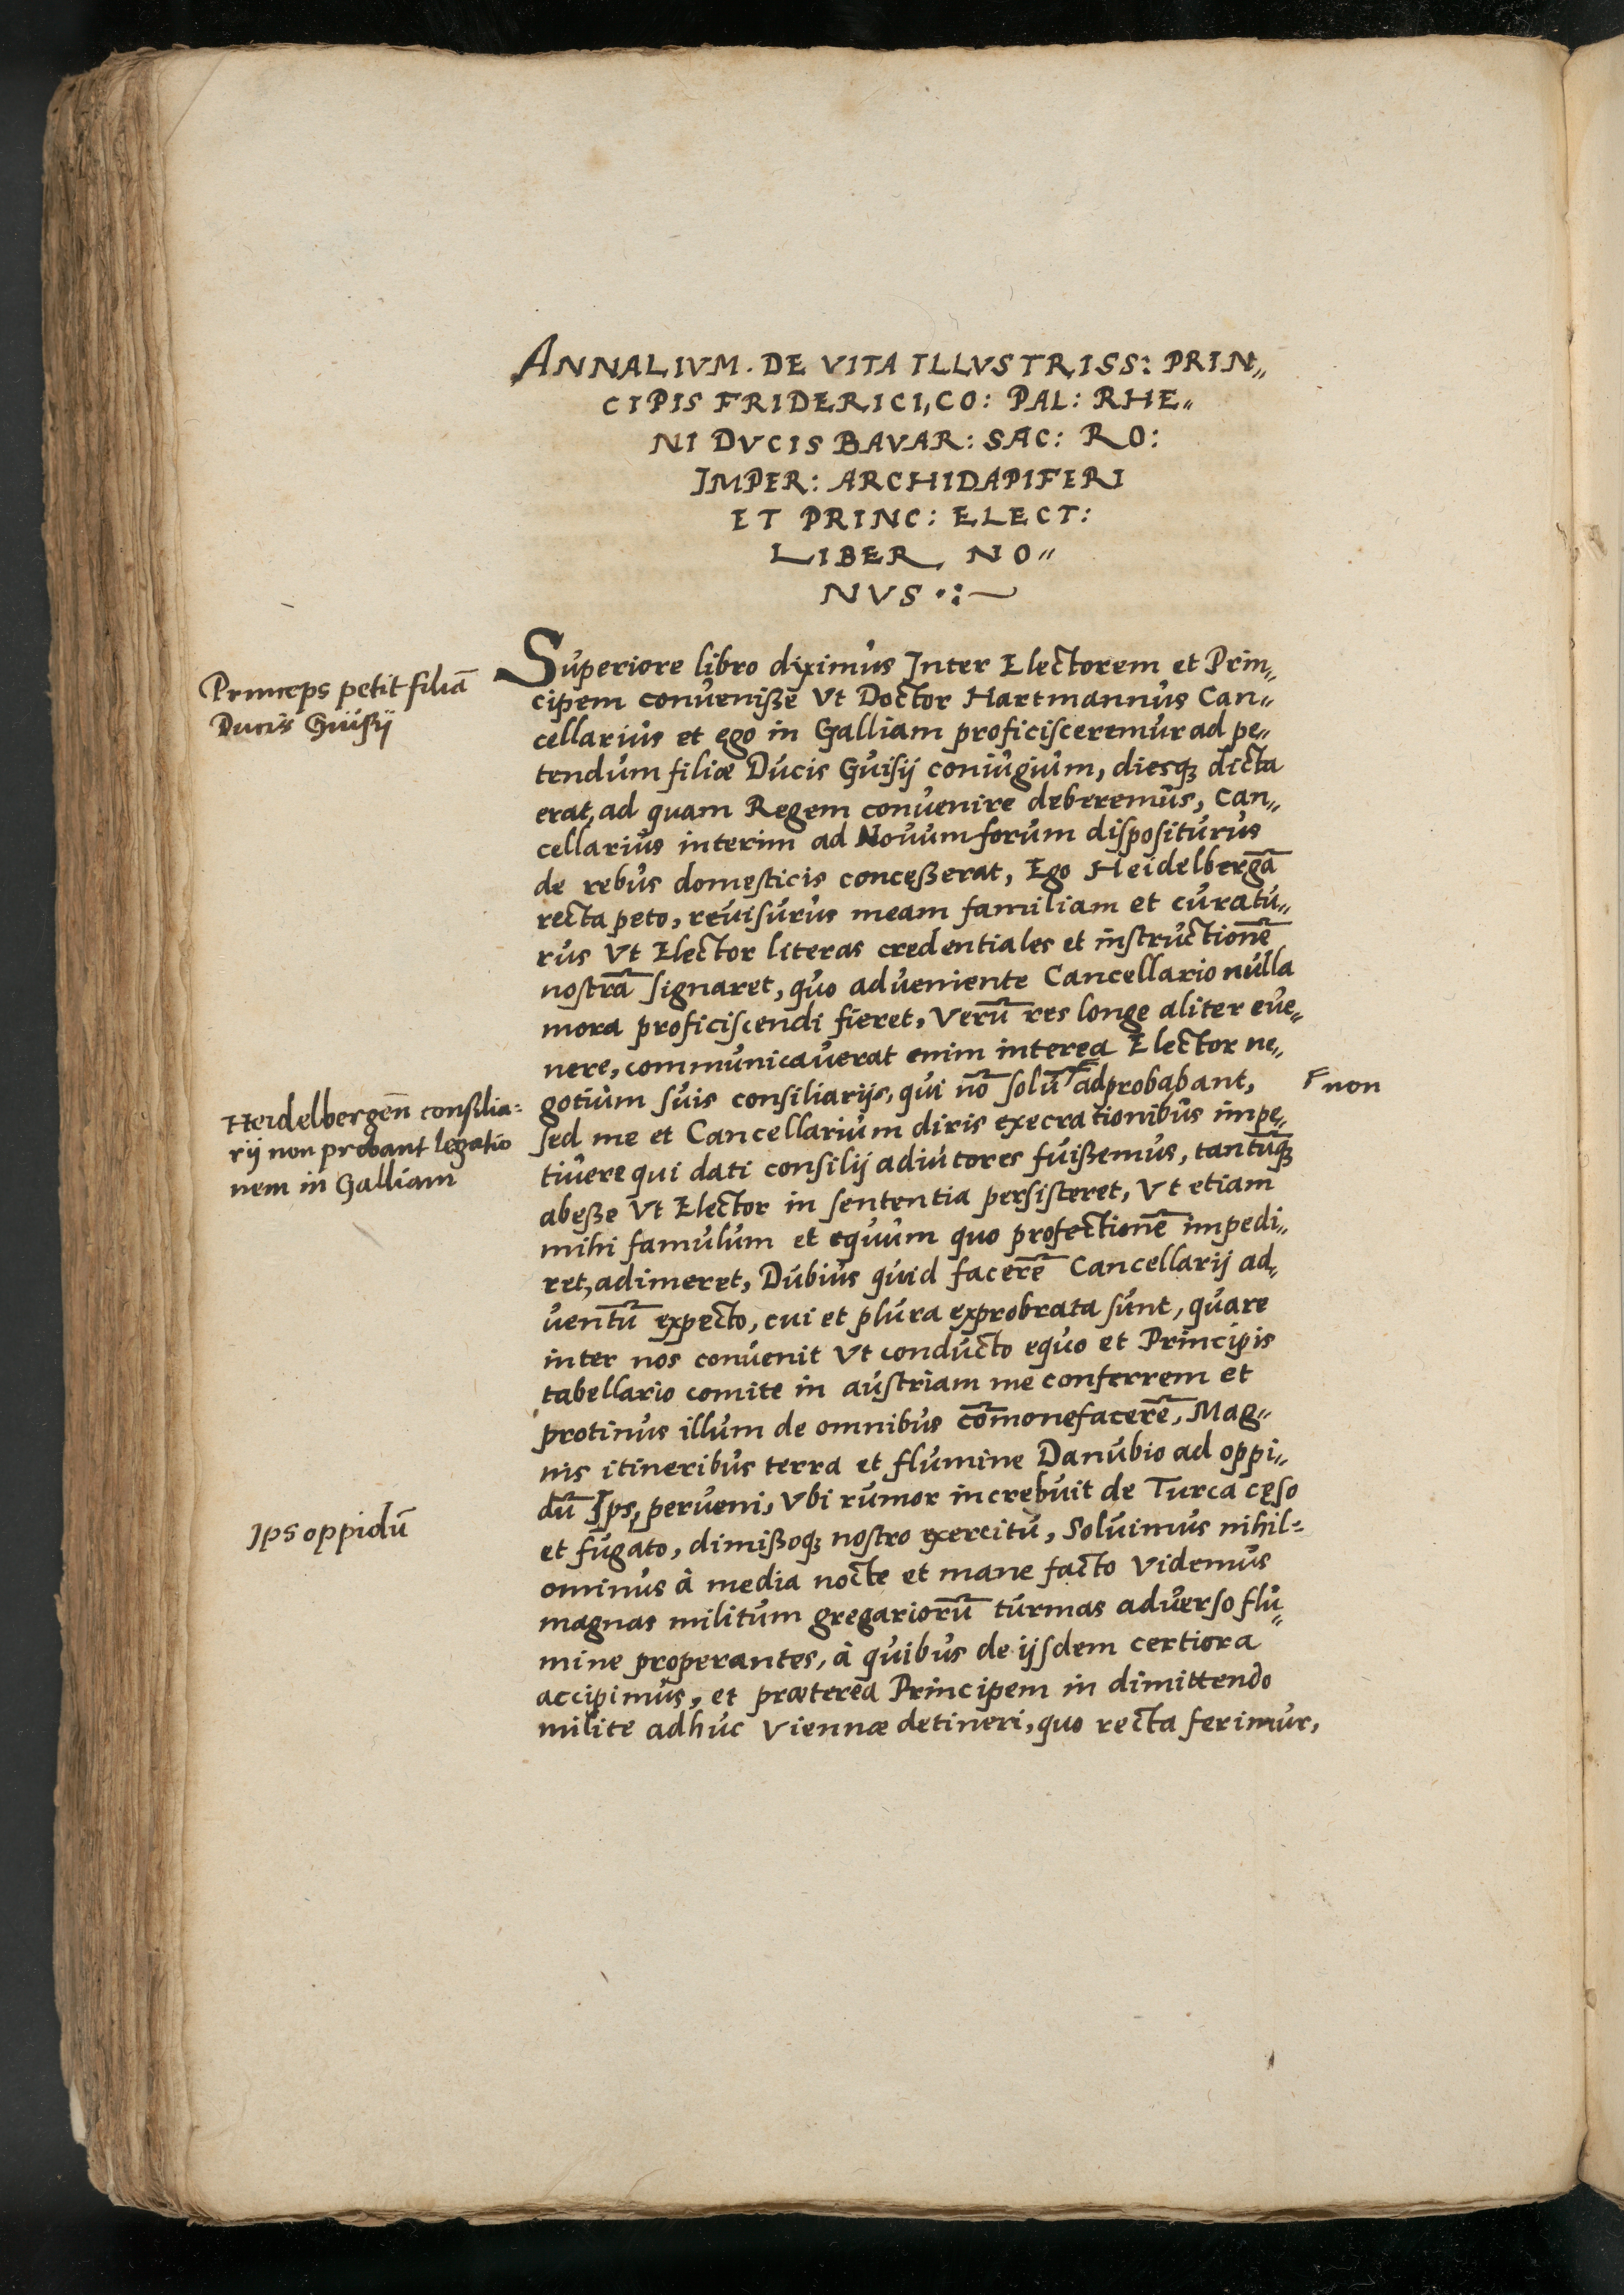 ANNALIVM. DE VITA ILLVSTRISS: PRIN„
CIPIS FRIDERICI, CO: PAL: RHE„
NI DVCIS BAVAR: SAC: RO:
IMPER: ARCHIDAPIFERI
ET PRINC: ELECT:
LIBER NO„
NVS
Princeps petit filiā
Ducis Guisij
Superiore libro diximus Inter Electorem et Prin„
cipem conveniße Vt Doctor Hartmannus Can„
cellarius et ego in Galliam proficisceremur ad pe„
tendum filiæ Ducis Guisij coniugium, diesq; dicta
erat, ad quam Regem convenire deberemus, Can„
cellarius interim ad Novum forum dispositurus
de rebus domesticis conceßerat, Ego Heidelbergā
recta peto, revisurus meam familiam et curatu„
rus Vt Elector literas credentiales et instructionē
nostrā signaret, quo adveniente Cancellario nulla
mora proficiscendi fieret, Verū res longe aliter eve„
nere, communicaverat enim interea Elector ne„
gotium suis consiliarijs, qui nō solū ┌ adprobabant,
┌ non
Heidelbergeñ consilia=
rij non probant legatio
nem in Galliam
sed me et Cancellarium diris execrationibus impe„
tivere qui dati consilij adiutores fuißemus, tantūq;
abeße Vt Elector in sententia persisteret, Vt etiam
mihi famulum et equum quo profectionē impedi„
ret, adimeret, Dubius quid facerē Cancellarij ad„
ventū expecto, cui et plura exprobrata sunt, quare
inter nos convenit Vt conducto equo et Principis
tabellario comite in austriam me conferrem et
protinus illum de omnibus cōmonefacerē, Mag„
nis itineribus terra et flumine Danubio ad oppi„
dū Ips, perveni, Vbi rumor increbuit de Turca cęso
Ips oppidū
et fugato, dimißoq; nostro exercitu, Solvimus nihil=
ominus à media nocte et mane facto Videmus
magnas militum gregariorū turmas adverso flu„
mine properantes, à quibus de ijsdem certiora
accipimus, et præterea Principem in dimittendo
milite adhuc Viennæ detineri, quo recta ferimur,